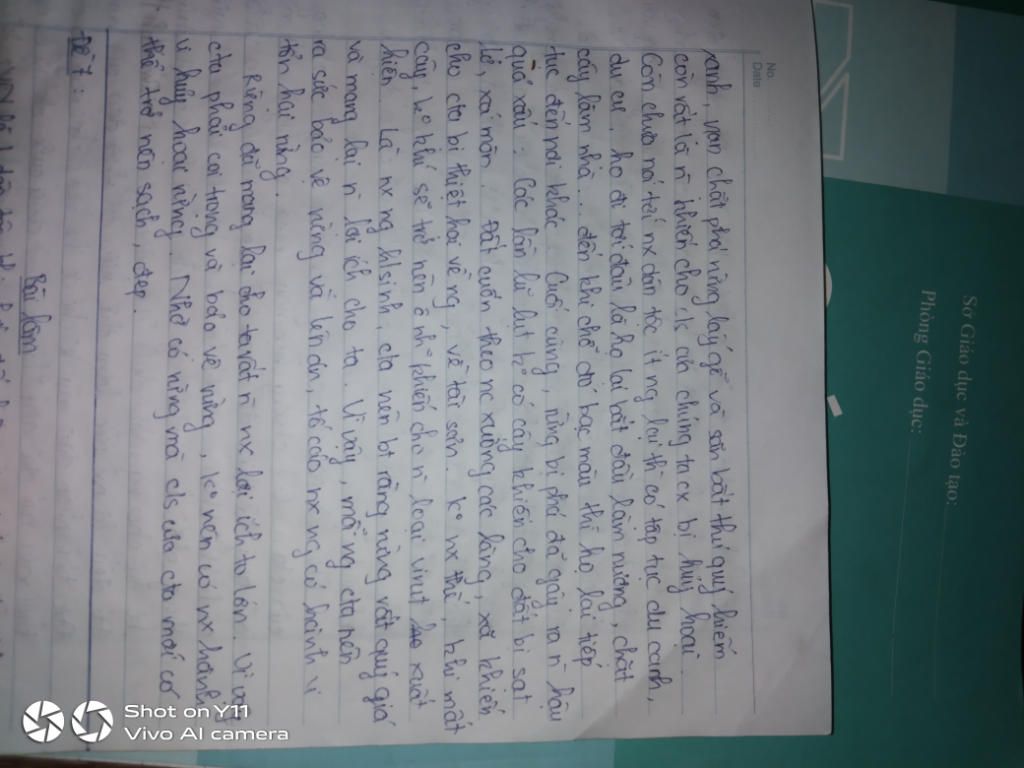 Sở Giáo dục và Đào tạo:
Phòng Giáo dục:
No.
Date
ranh, nạn chặt phá rừng lấy gỗ và săn bắt thú quý hiếm
còn vất là n` khiến cho của chúng ta cx bị huỷ hoại.
Còn chưa nói tới nx dân tộc ít ng lại thì có tập tục du canh,
du cư, họ đi tới đâu là họ lại bắt đầu làm nương, chặt
cây làm nhà... đến khi chỗ đó bạc màu thì họ lại tiếp
tục đến nơi khác. Cuối cùng, rừng bị phá đã gây ra n` hậu
quả xấu. Các lần lũ lụt k° có cây khiến cho đất bị sạt
lở, xói mòn. Đất cuốn theo nc xuống các lòng, xã khiến
cho cta bị thiệt hại về ng, về tài sản. K° nx thế, khi mất
cây, k° khí sẽ trở nên ô nh° khiến cho n` loại virut xuất
hiện. Là nx ng h/sinh, cta nên bt rằng rừng rất quý giá
và mang lại n` lợi ích cho ta. Vì vậy, mỗi ng cta nên
ra sức bảo vệ rừng và lên án, tố cáo nx ng có hành vi
tổn hại rừng.
Rừng đã mang lại cho ta rất n` nx lợi ích to lớn. Vì vậy
cta phải coi trọng và bảo vệ rừng, k° nên có nx hành
vi huỷ hoại rừng. Nhờ có rừng mà c/s của cta mới có
thể trở nên sạch, đẹp.
Đề 7:
Bài làm
Shot on Y11
Vivo AI camera